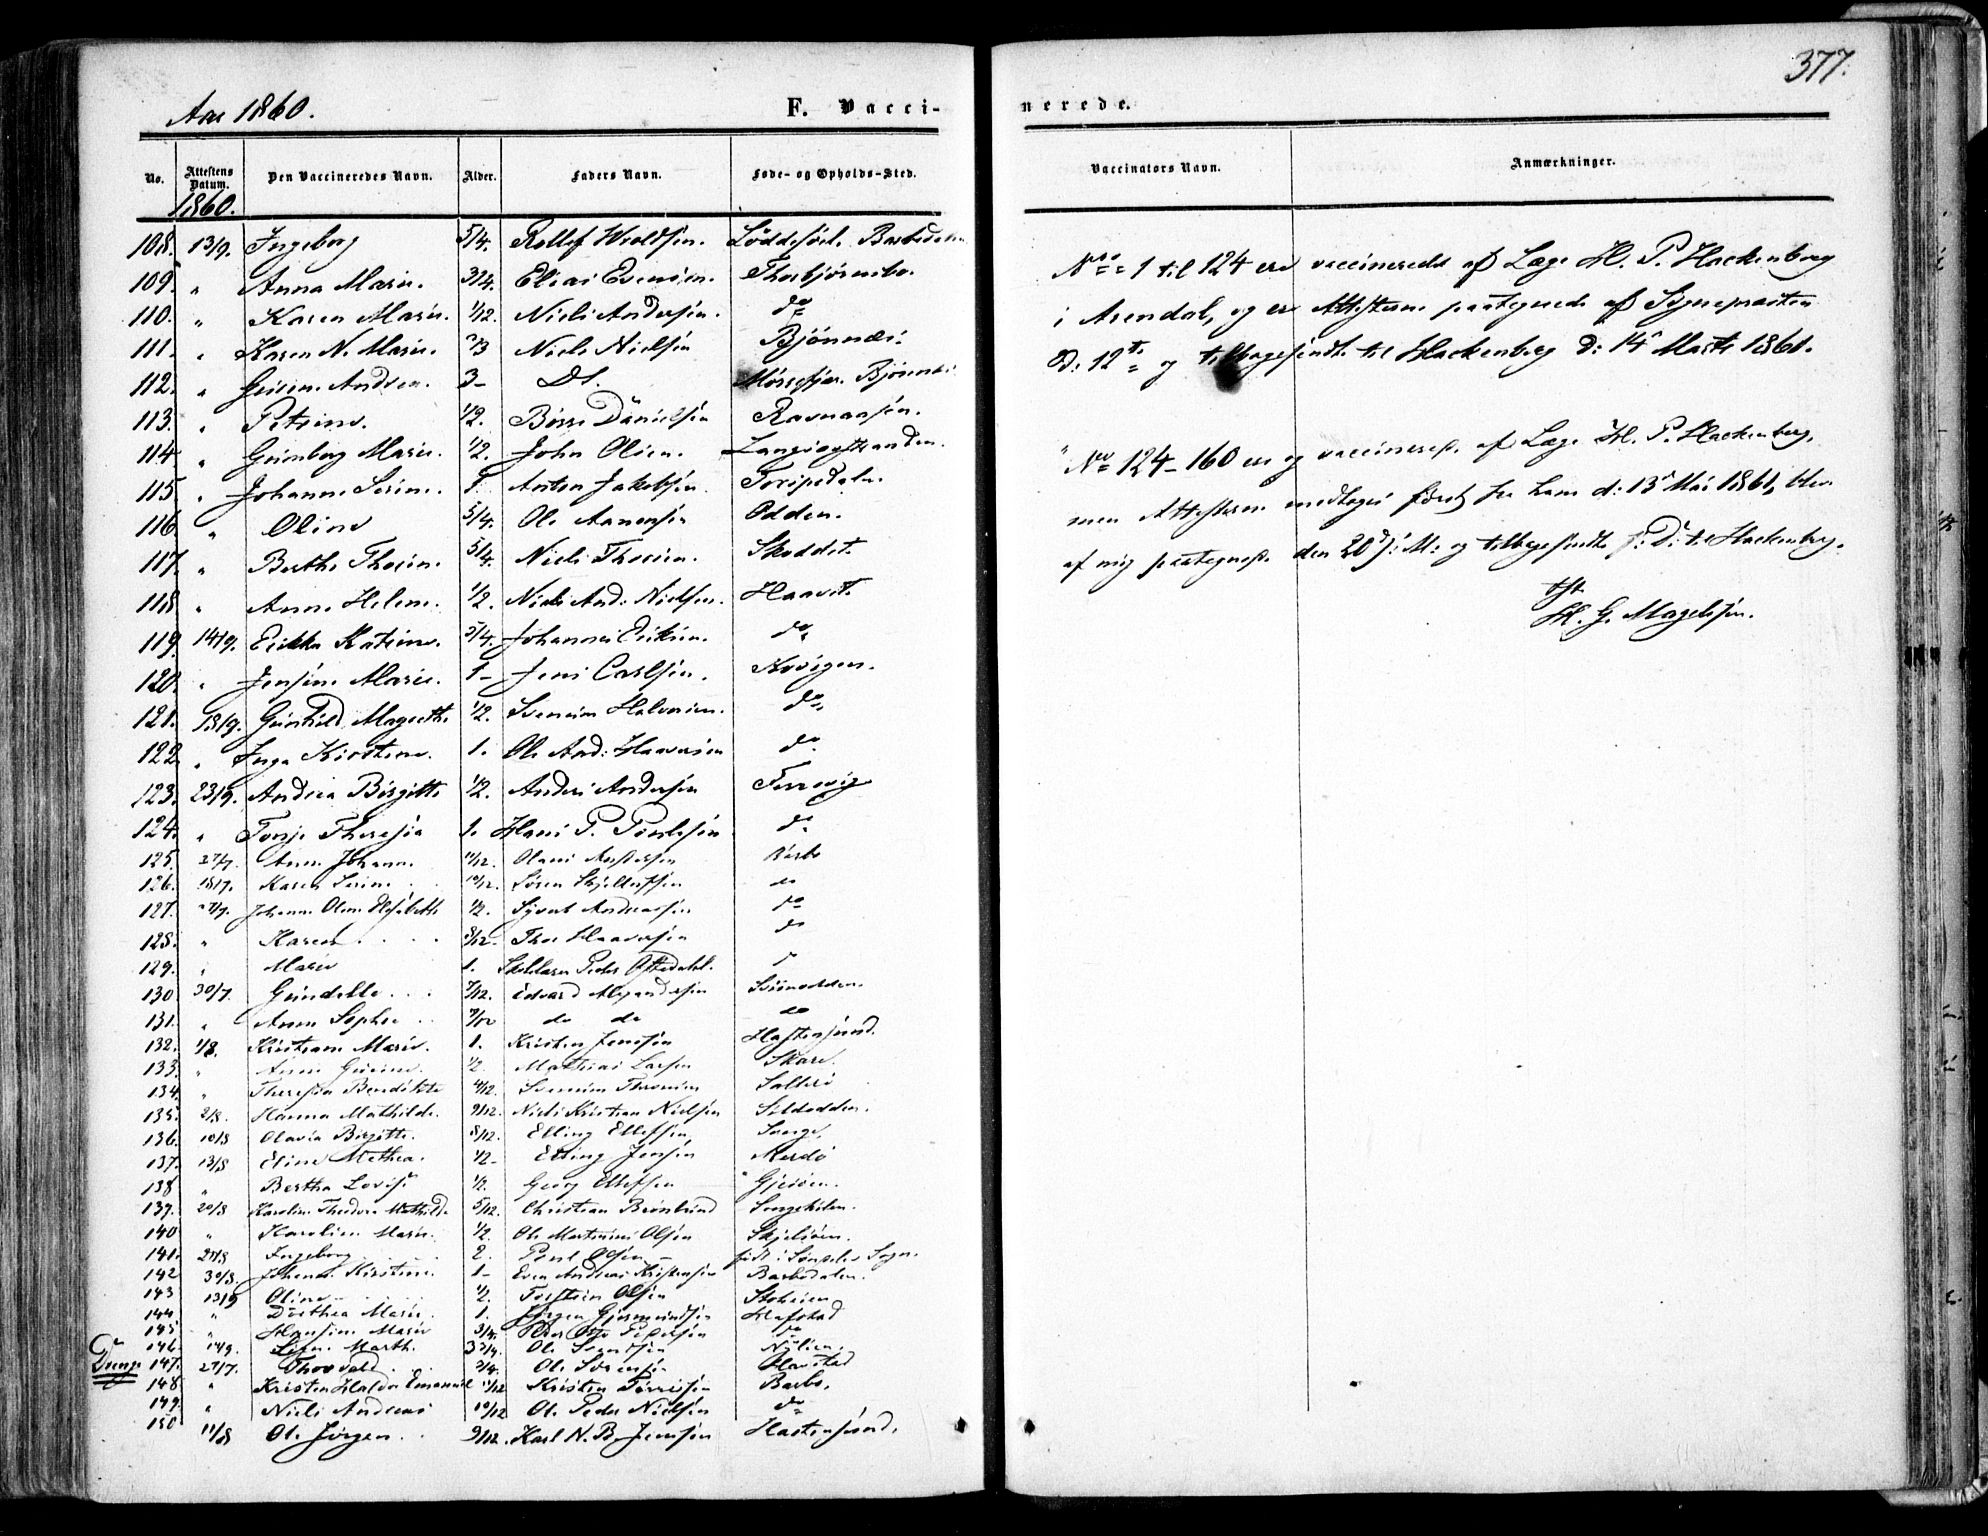 377.
Aar 1860. F. Vacci-
nerede.
No. Attestens Datum. Den Vaccineredes Navn. Alder. Faders Navn. Føde- og Opholds-Sted.
Vaccinators Navn. Anmærkninger.
1860.
108. 13/9. Ingeborg 5/4. Rollef
109. " Anna Marie. 3/4. Elias Evensen. Thorbjørnsbo.
110. " Karen Marie. 1/12. Niels Andersen. do
111. " Karen N. Marie. Niels Nielsen Bjønnes.
112. " Andrea. 3- Ds.
113. " Petrine. 1/2. Børre Danielsen Ravnaasen.
114 " Gunborg Marie. 1/2. John Olsen. Langsøystranden.
115. " Johanne Serine. 1. Anton Jakobsen. Torspedalen.
116. " Oline 5/4. Ole Aanonsen Odden.
117. " Berthe Thorine. 5/4. Niels Thorsen. Skoddet.
118 " Anne Helene. 1/2. Niels And: Nielsen. Haavet.
119. 14/9. Erikka Katrine 5/4. Johannes Eriksen. do
120. " Jensine Marie. 1- Jens Carlsen. Kvigen.
121. 18/9. Gunhild Magrethe 1/2. Svenum Halvorsen. do
122. " Inga Kirstine. 1. Ole And: Haavorsen do
123. 23/9. Andrea Birgitte 1/2. Anders Andersen
124. " Tonje Theresia 1. Hans P. do
125. 27/7. Anne Johanne 11/12. Barbo
126. 18/7. Karen Serine 10/12. Søren do
127. Johanne Oline Elisabeth 1/2. Syvert Andreassen do
128. " Karen. 8/12. Thor Haavorsen do
129. " Marie 1. Peder
130. 30/7. Gundelle 7/12. Edvard Alexandersen
131. " Anne Sophie do do do
132. 1/8. Kristiane Marie. 1. Kristen Jensen Hastensund.
133. " Anne 1/2. Mathias Larsen Skare.
134. " Theresia Bendikte 4/12. Svenum Thorsen Salterø
135. 2/8. Hanna Mathilde. 9/12. Niels Kristian Nielsen Sildodden.
136. 10/8 Olavia Birgitte. 8/12. Elling Ellefsen, Songe.
137. 13/8 Eline Mathea. 1/2 Elling Jensen Merdø
138 " Bertha Lovise 1/2. Georg Ellefsen Gjeøen.
139. 20/8 Karoline Theodora Mathilde 5/12. Christian Brønlund Songekilen.
140 " Karoline Marie. 1/2. Ole Martinus Olsen Skjelsøen.
141. Ingeborg 2. Poul Olsen født i Søndeles Sogn.
142 30/8. Johanne Kirstine. 1- Even Andreas Kristensen Barbodalen.
143 13/9 Oline 1/2. Torsten Olsen Stokken
144 " Dorthea Marie. 1. Jørgen Gjermundsen Hafstad
145 " Hansine Marie 3/4. do
146. 14/9. Marth. Ole Nylien.
Drenge 147. 27/7. Thorvald Ole Sørensen Havstad
148 " Kristen Halvor Emanuel 11/12 Kristen Barbo,
149. " Niels Andreas 10/12 Ole Peder Nielsen do
150 11/8 Ole Jørgen 9/12. Karl N. B. Jensen Hastensund.
No 1 til 124 ere vaccinerede af Læge H. P. Hackenberg
i Arendal, og er Attesterne paategnede af Sognepræsten
d: 12te og tilbagesendte til Hackenberg d: 14 Marts 1861.
No 124-160 ere og vaccinerede af Læge H. P. Hackenberg,
men Attesterne modtoges først fra ham d: 13 Mai 1861, blev
af mig paategnede den 20 s: M: og tilbagesendte s: D: til Hackenberg.
tst
H. G. Magelssen.